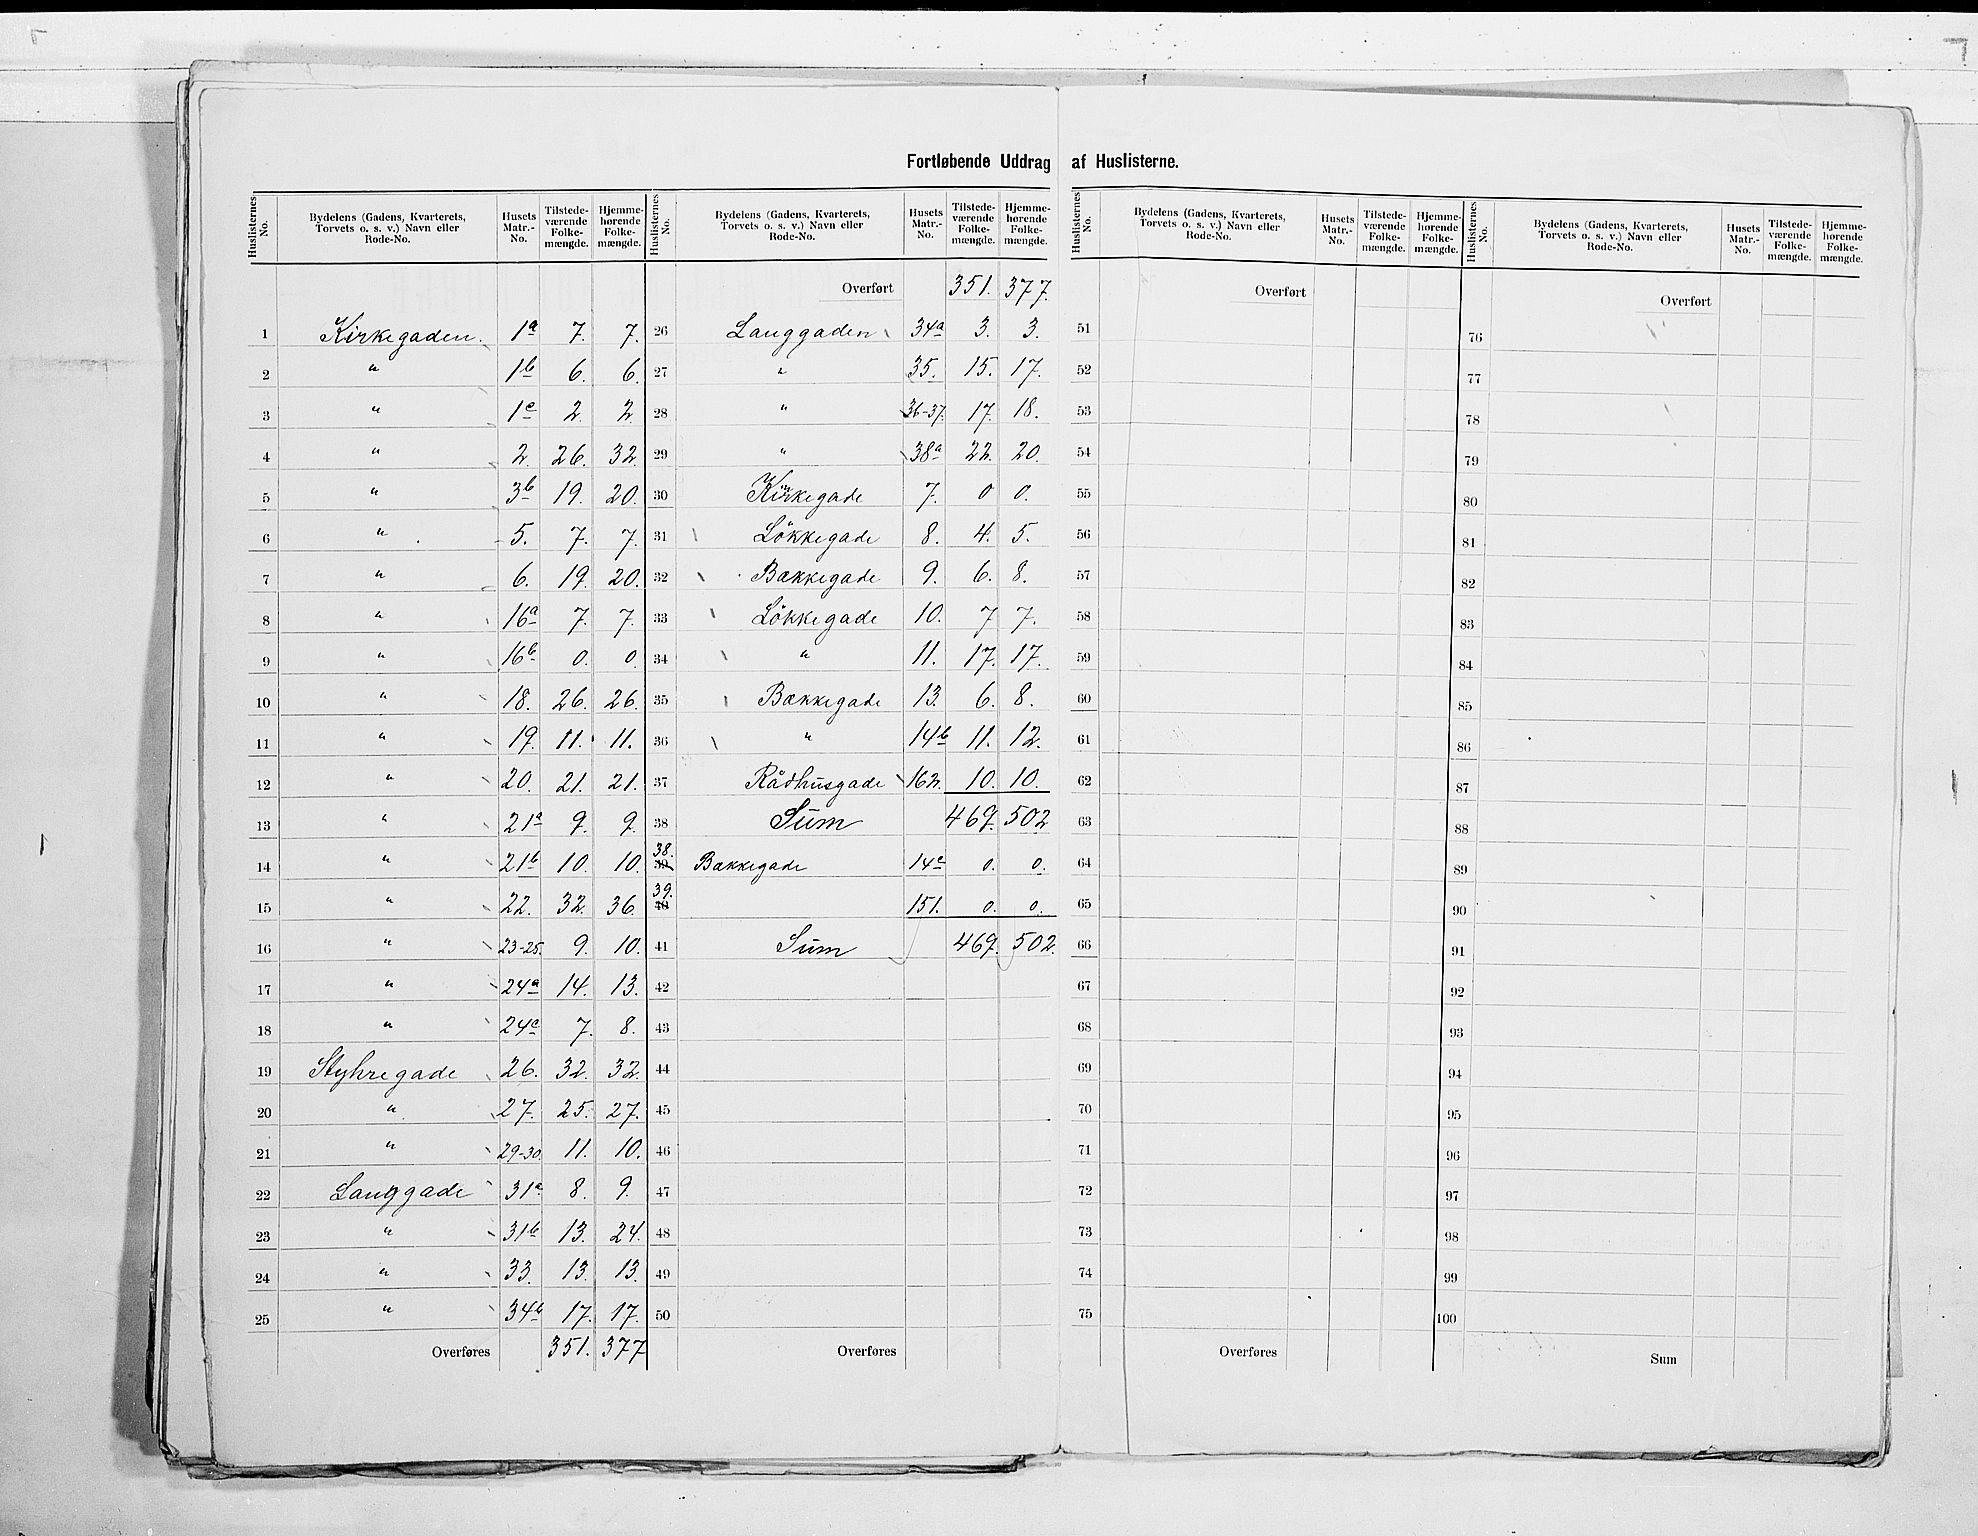 Fortløbende Uddrag af Huslisterne.
Huslisternes No. Bydelens (Gadens, Kvarterets, Torvets o. s. v.) Navn eller Rode-No. Husets Matr.-No. Tilstedeværende Folkemængde. Hjemmehørende Folkemængde.
1 Kirkegaden. 1a 7. 7.
2 " 1b 6. 6.
3 " 1c 2. 2.
4 " 2. 26. 32.
5 " 3b 19. 20.
6 " 5. 7. 7.
7 " 6. 19. 20.
8 " 16a 7. 7.
9 " 16b 0. 0.
10 " 18. 26. 26.
11 " 19. 11. 11.
12 " 20. 21. 21.
13 " 21a 9. 9.
14 " 21b 10. 10.
15 " 22. 32. 36.
16 " 23-25. 9. 10.
17 " 24a 14. 13.
18 " 24c 7. 8.
19 Styhregade 26. 32. 32.
20 " 27. 25. 27.
21 " 29-30. 11. 10.
22 Langgade 31a 8. 9.
23 " 31b 13. 24.
24 " 33. 13. 13.
25 " 34b 17. 17.
Overføres 351. 377
Huslisternes No. Bydelens (Gadens, Kvarterets, Torvets o. s. v.) Navn eller Rode-No. Husets Matr.-No. Tilstedeværende Folkemængde. Hjemmehørende Folkemængde.
Overført 351. 377.
26 Langgaden 34a 3. 3.
27 " 35. 15. 17.
28 " 36-37. 17. 18.
29 " 38a 22. 20.
30 Kirkegade 7. 0 0.
31 Løkkegade 8. 4. 5.
32 Bækkegade 9. 6. 8.
33 Løkkegade 10. 7 7.
34 " 11. 17. 17.
35 Bækkegade 13. 6. 8.
36 " 14b 11. 12.
37 Rådhusgade 162. 10. 10.
38 Sum 469. 502
38. 39 Bækkegade 14c 0. 0.
39. 40 151. 0. 0.
41 Sum 469. 502.
42
43
44
45
46
47
48
49
50
Overføres
Huslisternes No. Bydelens (Gadens, Kvarterets, Torvets o. s. v.) Navn eller Rode-No. Husets Matr.-No. Tilstedeværende Folkemængde. Hjemmehørende Folkemængde.
Overført
51
52
53
54
55
56
57
58
59
60
61
62
63
64
65
66
67
68
69
70
71
72
73
74
75
Overføres
Huslisternes No. Bydelens (Gadens, Kvarterets, Torvets o. s. v.) Navn eller Rode-No. Husets Matr.-No. Tilstedeværende Folkemængde. Hjemmehørende Folkemængde.
Overført
76
77
78
79
80
81
82
83
84
85
86
87
88
89
90
91
92
93
94
95
96
97
98
99
100
Sum